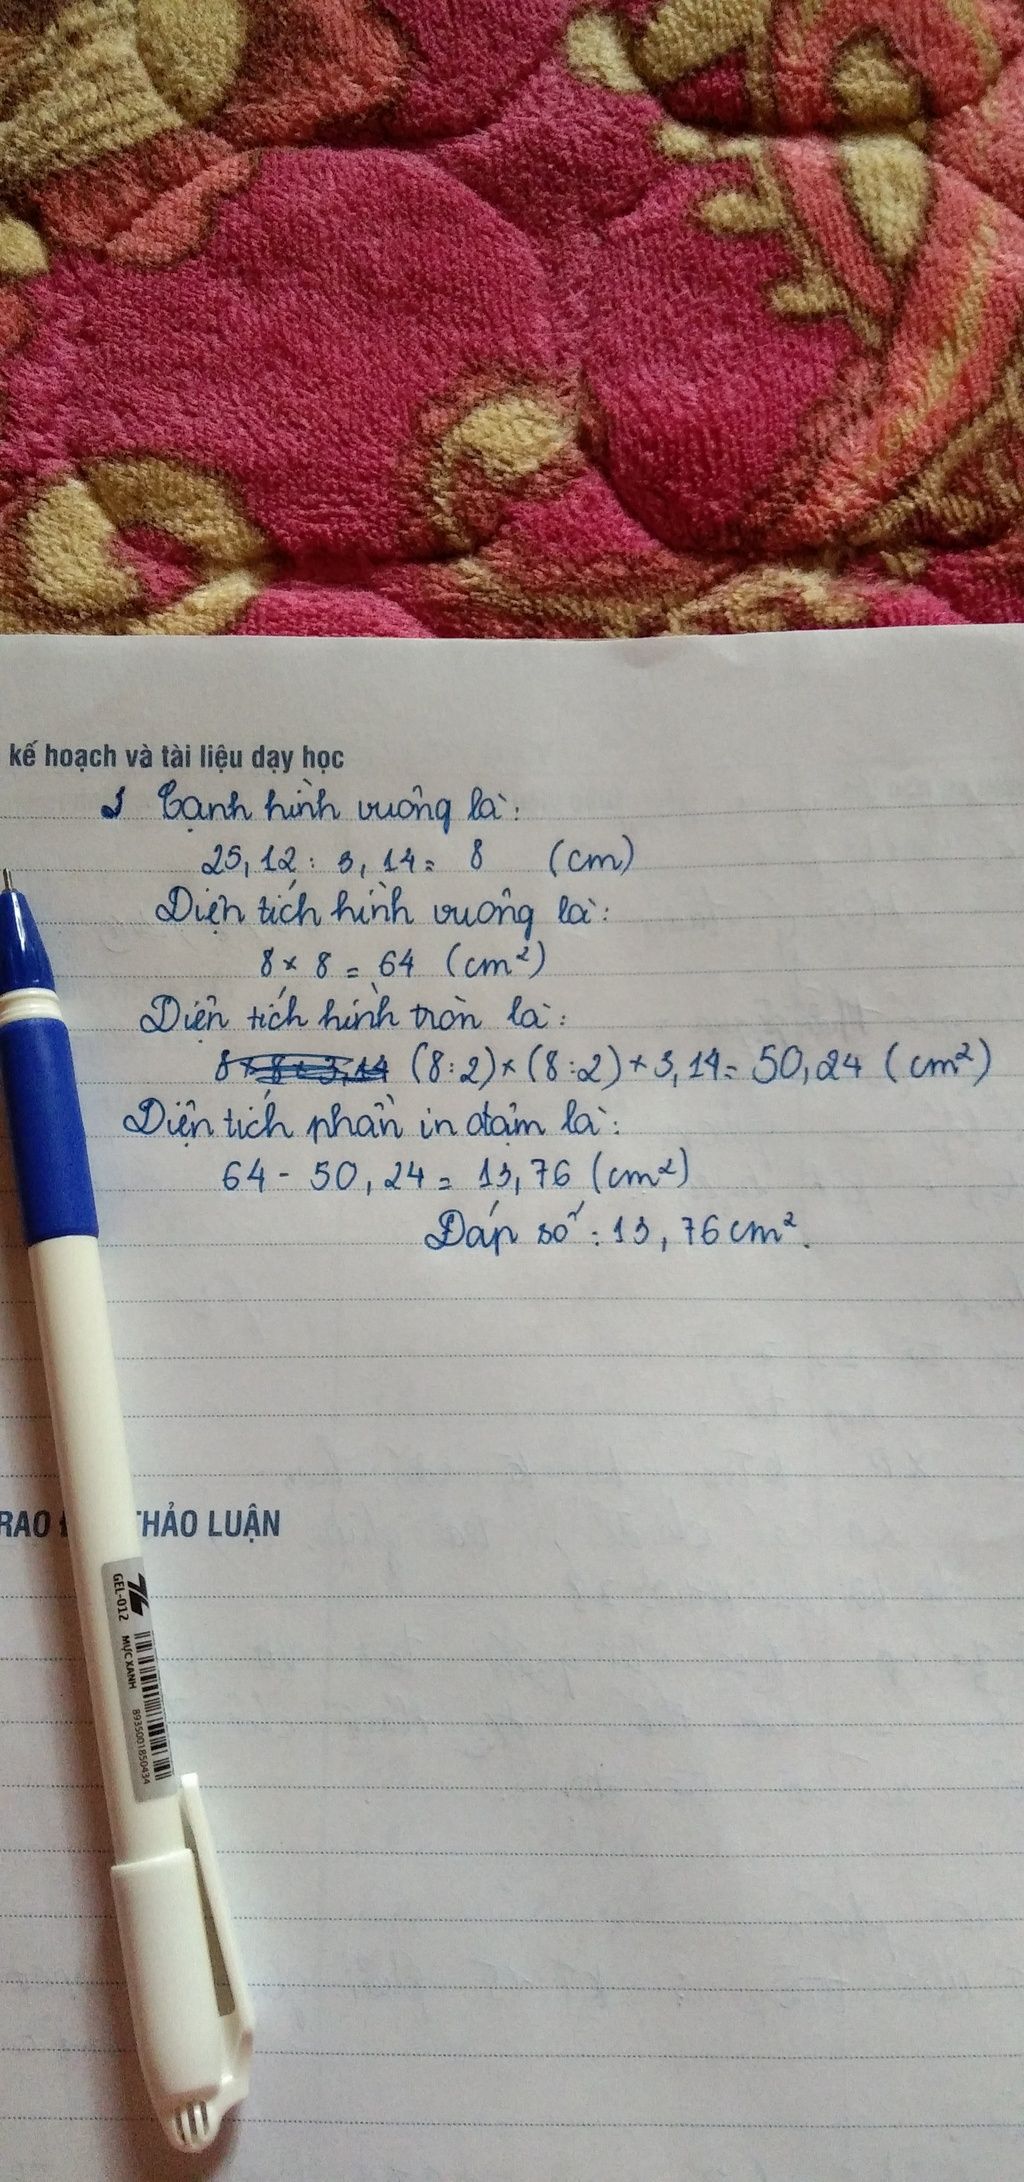 kế hoạch và tài liệu dạy học
Cạnh hình vuông là:
25,12 : 3,14 = 8 (cm)
Diện tích hình vuông là:
8 x 8 = 64 (cm²)
Diện tích hình tròn là:
8 x 8 x 3,14 (8:2) x (8:2) x 3,14 = 50,24 (cm²)
Diện tích phần in đậm là:
64 - 50,24 = 13,76 (cm²)
Đáp số : 13,76 cm².
RAO THẢO LUẬN
GEL-012 MỰC XANH
8935001850434